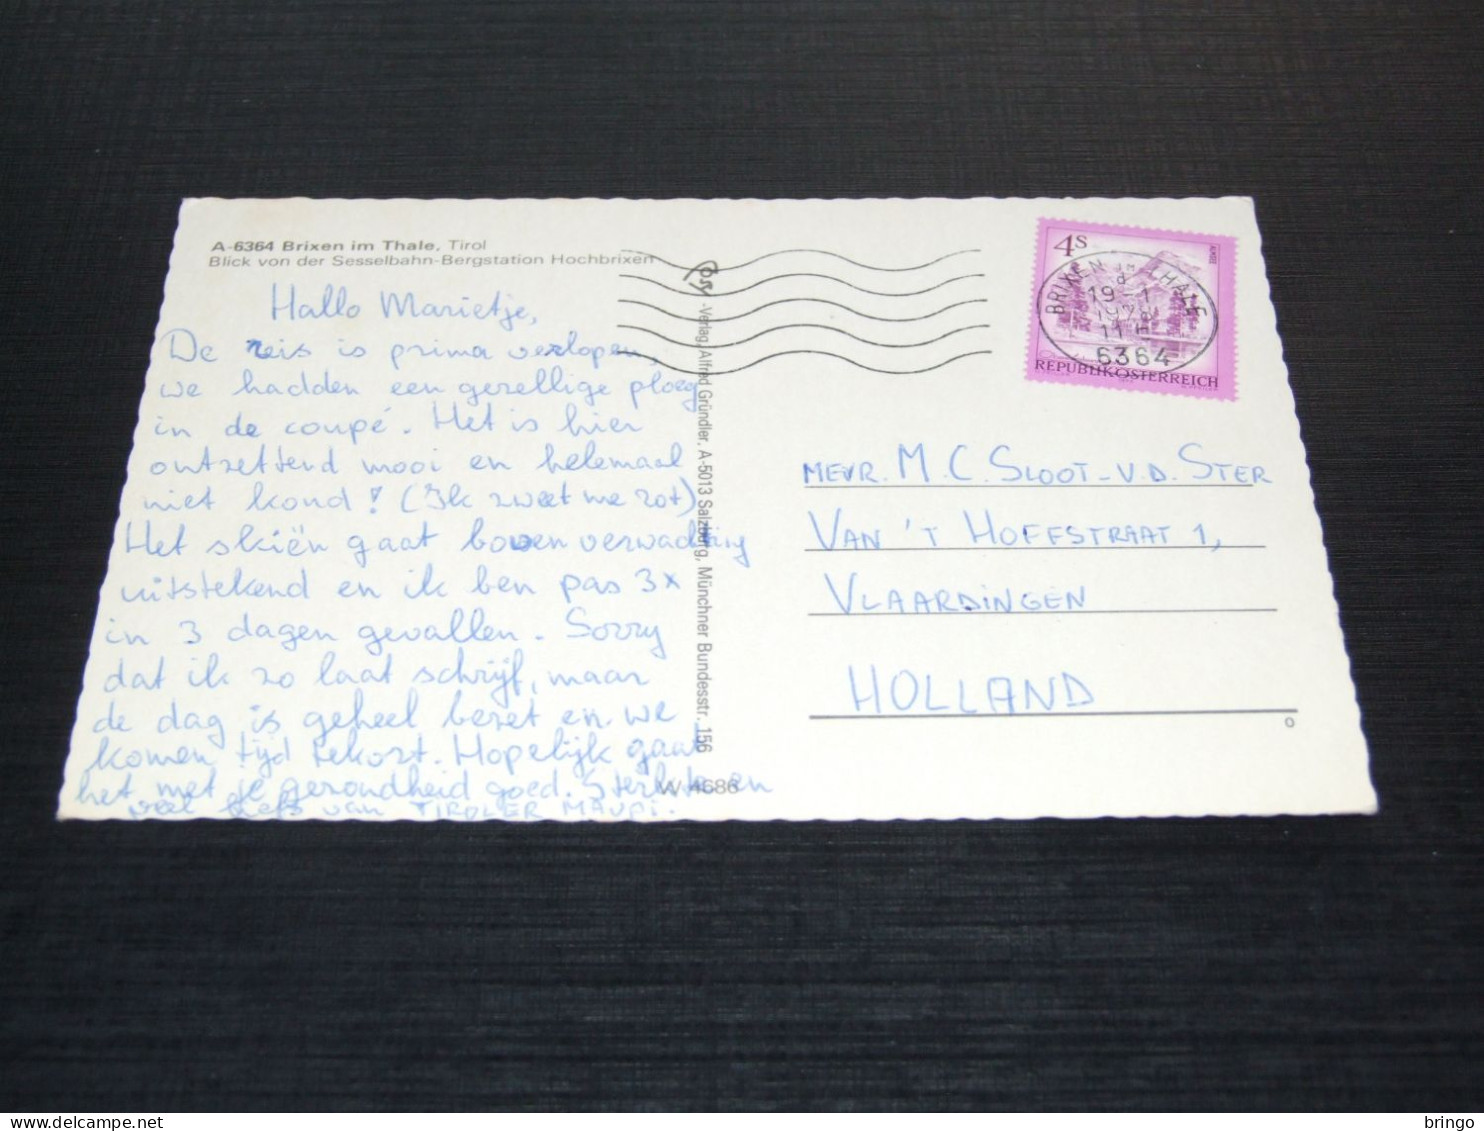 A-6364 Brixen im Thale, Tirol
Blick von der Sesselbahn-Bergstation Hochbrixen
Hallo Marietje,
De reis is prima verlopen,
we hadden een gezellige ploeg
in de coupé. Het is hier
ontzettend mooi en helemaal
niet koud! (Ik zweet me rot)
Het skiën gaat boven verwachting
uitstekend en ik ben pas 3x
in 3 dagen gevallen. Sorry
dat ik zo laat schrijf, maar
de dag is geheel bezet en we
komen tijd tekort. Hopelijk gaat
het met je gezondheid goed. Sterkte en
veel liefs van TIROLER
-Verlag, Alfred Gründler, A-5013 Salzburg, Münchner Bundesstr. 156
W 4686
4S
ALMSEE
REPUBLIK ÖSTERREICH
BRIXEN IM THALE
d
19. 1
11 H
6364
MEVR. M. C. SLOOT-V.D. STER
VAN 'T HOFFSTRAAT 1,
VLAARDINGEN
HOLLAND
bringo